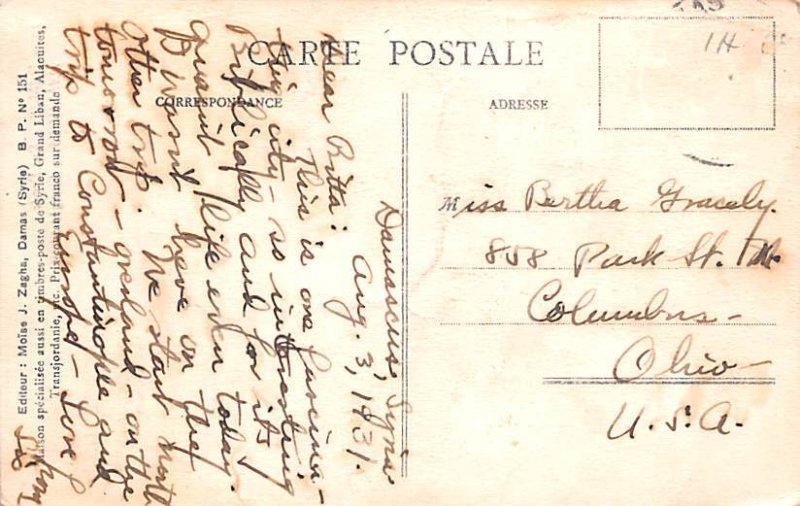 CARTE POSTALE
CORRESPONDANCE
ADRESSE
1H
Damascus, Syria
Aug. 3, 1931.
Dear Betta:
This is one fascina-
ting city - so interesting
Biblically and for its
quaint life even today.
Dwasn't here on the
other trip. We start north
tomorrow - overland - on the
trip to Constantinople and
Europe - Love
Miss Bertha Gracely.
858 Park St.
Columbus -
Ohio -
U.S.A.
Editeur : Moïse J. Zagha, Damas (Syrie) B. P. Nº 151
Maison spécialisée aussi en timbres-poste de Syrie, Grand Liban, Alaouites,
Transjordanie, etc. Prix-courant franco sur demande